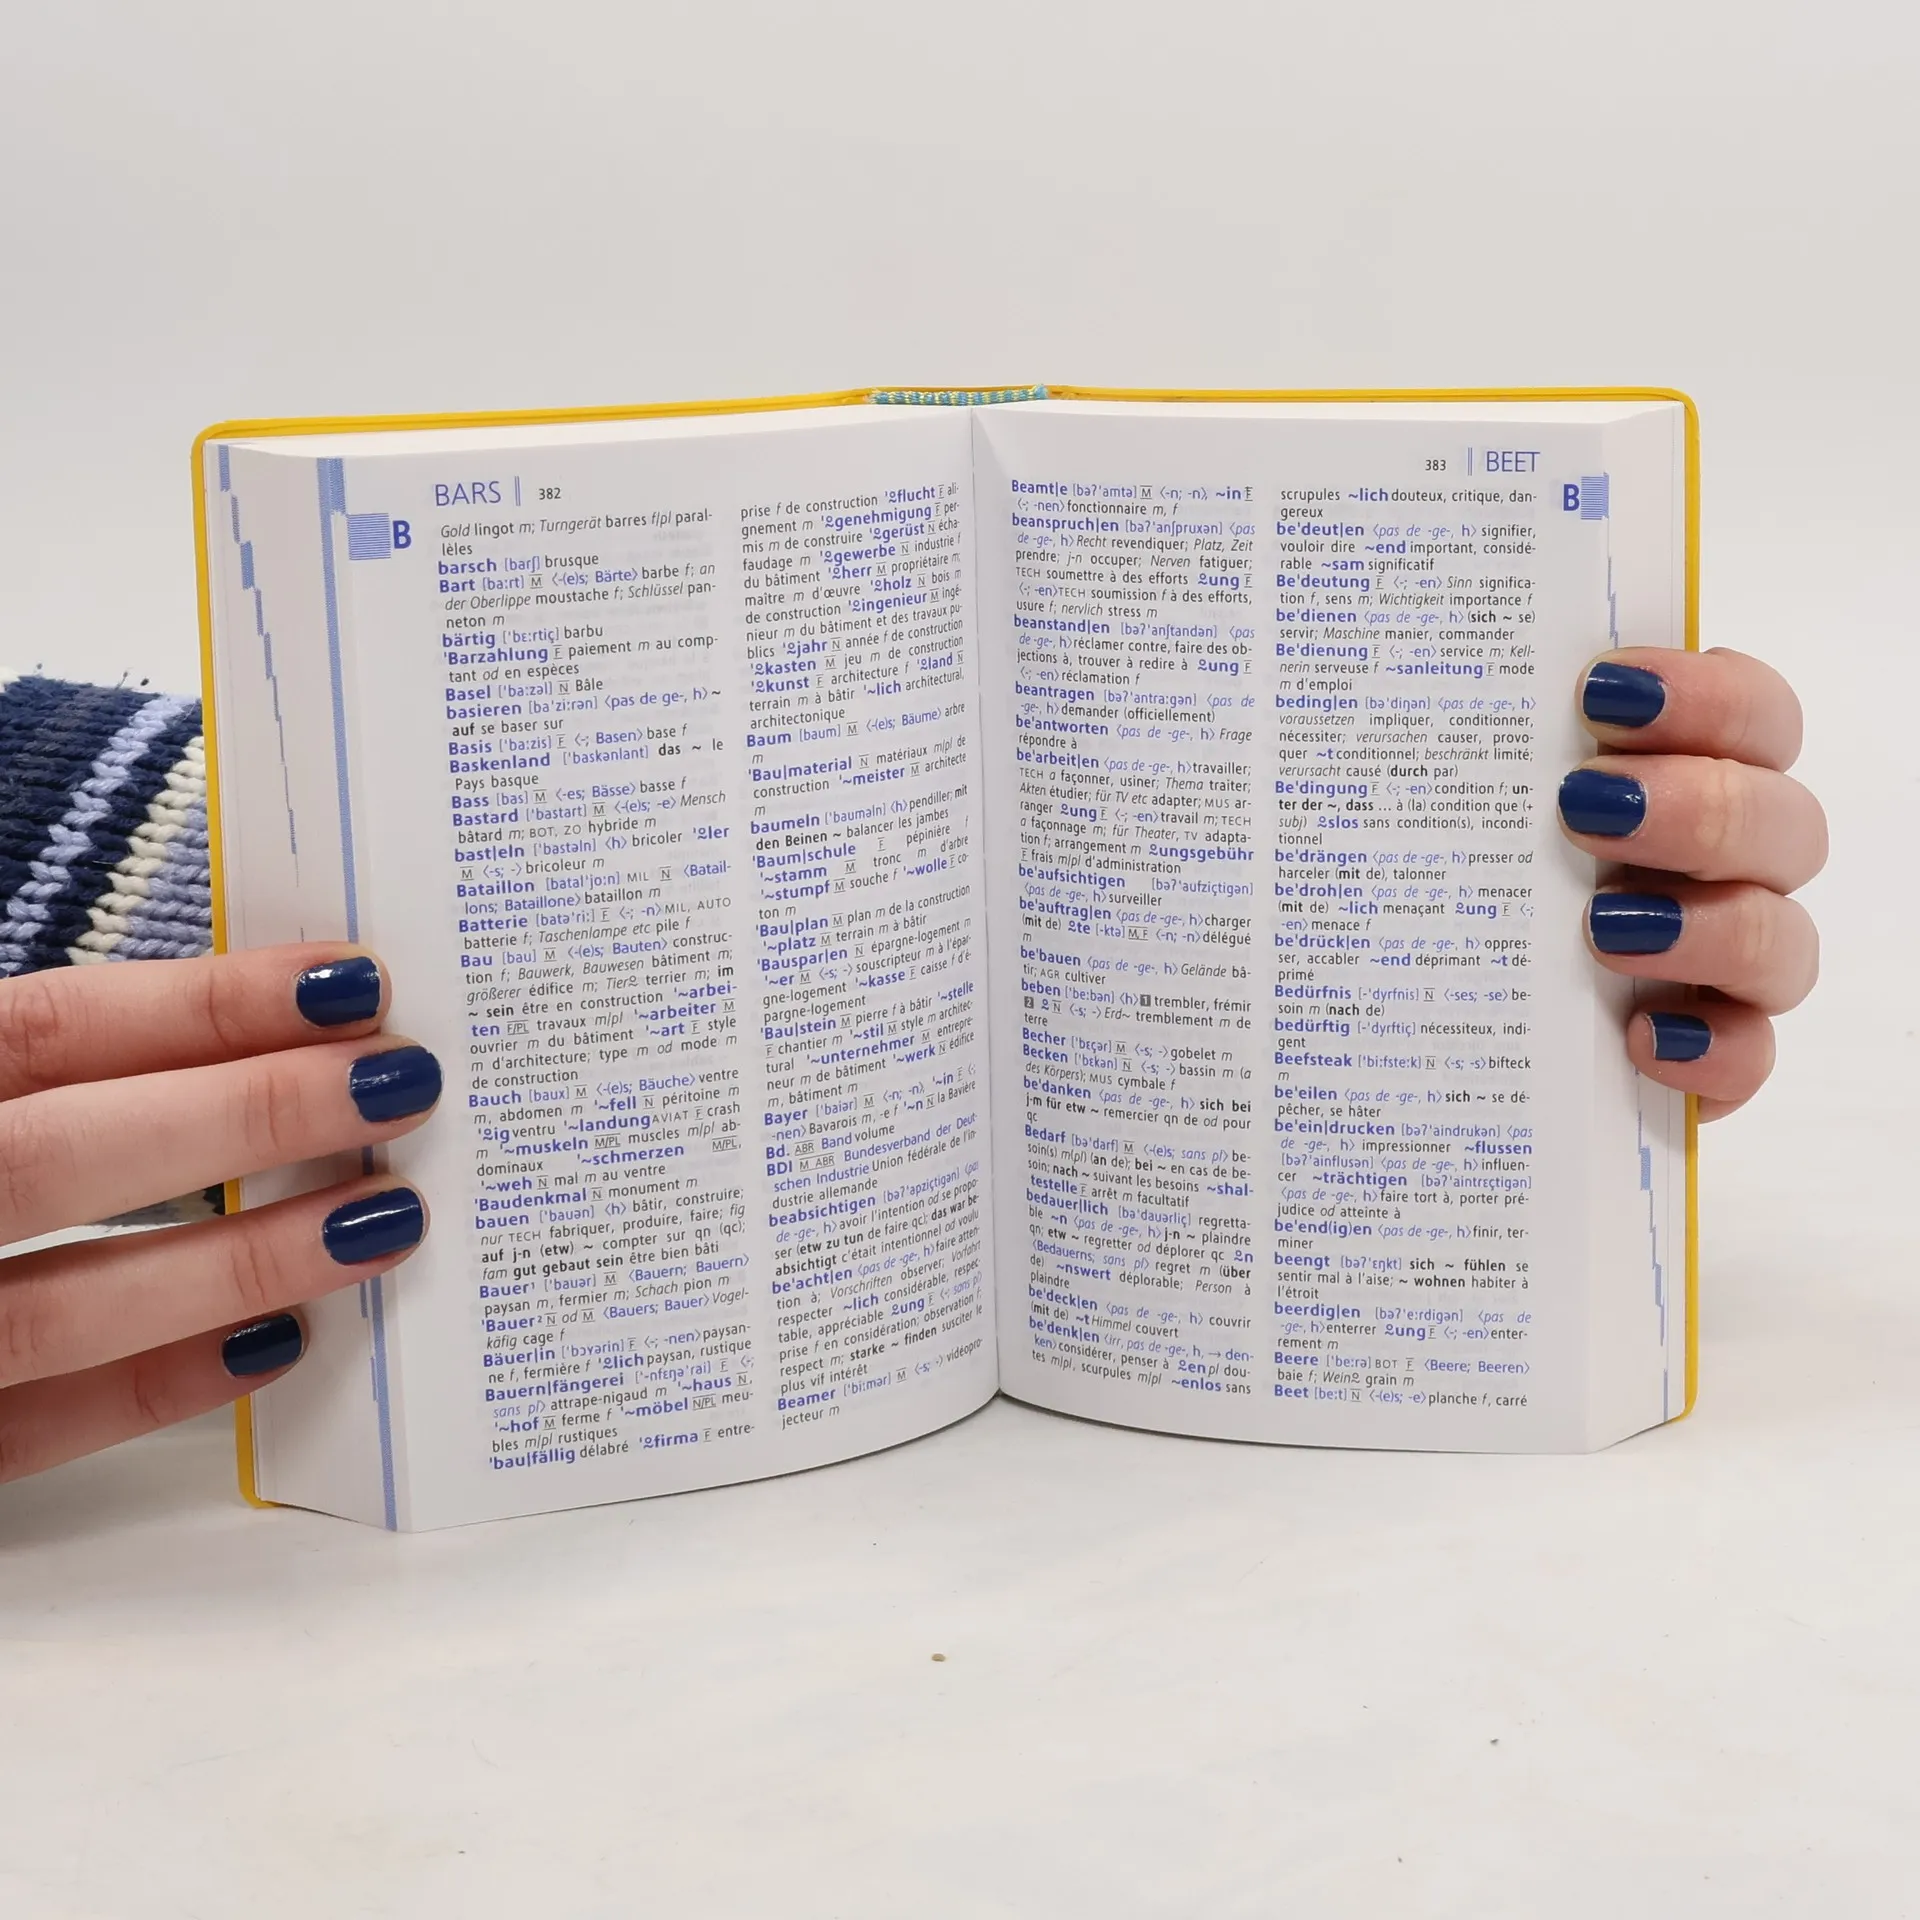 BARS 382
B
Gold lingot m; Turngerät barres f/pl paral-
lèles
barsch [barʃ] brusque
Bart [ba:rt] M ⟨-(e)s; Bärte⟩ barbe f; an
der Oberlippe moustache f; Schlüssel pan-
neton m
bärtig ['bɛ:rtiç] barbu
'Barzahlung F paiement m au comp-
tant od en espèces
Basel ['ba:zəl] N Bâle
basieren [ba'zi:rən] ⟨pas de ge-, h⟩ ~
auf se baser sur
Basis ['ba:zis] F ⟨-; Basen⟩ base f
Baskenland ['baskənlant] das ~ le
Pays basque
Bass [bas] M ⟨-es; Bässe⟩ basse f
Bastard ['bastart] M ⟨-(e)s; -e⟩ Mensch
bâtard m; BOT, ZO hybride m
bast|eln ['bastəln] ⟨h⟩ bricoler '2ler
M ⟨-s; -⟩ bricoleur m
Bataillon [batal'jo:n] MIL N ⟨Batail-
lons; Bataillone⟩ bataillon m
Batterie [batə'ri:] F ⟨-; -n⟩ MIL, AUTO
batterie f; Taschenlampe etc pile f
Bau [bau] M ⟨-(e)s; Bauten⟩ construc-
tion f; Bauwerk, Bauwesen bâtiment m;
größerer édifice m; Tier2 terrier m; im
~ sein être en construction '~arbei-
ten F/PL travaux m/pl '~arbeiter M
ouvrier m du bâtiment '~art F style
m d'architecture; type m od mode m
de construction
Bauch [baux] M ⟨-(e)s; Bäuche⟩ ventre
m, abdomen m '~fell N péritoine m
'2ig ventru '~landung AVIAT F crash
m '~muskeln M/PL muscles m/pl ab-
dominaux '~schmerzen M/PL,
'~weh N mal m au ventre
'Baudenkmal N monument m
bauen ['bauən] ⟨h⟩ bâtir, construire;
nur TECH fabriquer, produire, faire; fig
auf j-n (etw) ~ compter sur qn (qc);
fam gut gebaut sein être bien bâti
Bauer¹ ['bauər] M ⟨Bauern; Bauern⟩
paysan m, fermier m; Schach pion m
'Bauer² N od M ⟨Bauers; Bauer⟩ Vogel-
käfig cage f
Bäuer|in ['bɔyərin] F ⟨-; -nen⟩ paysan-
ne f, fermière f '2lich paysan, rustique
Bauern|fängerei ['-nfɛŋə'rai] F ⟨-;
sans pl⟩ attrape-nigaud m '~haus N,
'~hof M ferme f '~möbel N/PL meu-
bles m/pl rustiques
'bau|fällig délabré '2firma F entre-
prise f de construction '2flucht F ali-
gnement m '2genehmigung F per-
mis m de construire '2gerüst N écha-
faudage m '2gewerbe N industrie f
du bâtiment '2herr M propriétaire m;
maître m d'œuvre '2holz N bois m
de construction '2ingenieur M ingé-
nieur m du bâtiment et des travaux pu-
blics '2jahr N année f de construction
'2kasten M jeu m de construction
'2kunst F architecture f '2land N
terrain m à bâtir '~lich architectural,
architectonique
Baum [baum] M ⟨-(e)s; Bäume⟩ arbre
m
'Bau|material N matériaux m/pl de
construction '~meister M architecte
m
baumeln ['baumaln] ⟨h⟩ pendiller; mit
den Beinen ~ balancer les jambes
'Baum|schule F pépinière f
'~stamm M tronc m d'arbre
'~stumpf M souche f '~wolle F co-
ton m
'Bau|plan M plan m de la construction
'~platz M terrain m à bâtir
'Bausparlen N épargne-logement m
'~er M ⟨-s; -⟩ souscripteur m à l'épar-
gne-logement '~kasse F caisse f d'é-
pargne-logement
'Bau|stein M pierre f à bâtir '~stelle
F chantier m '~stil M style m architec-
tural '~unternehmer M entrepre-
neur m de bâtiment '~werk N édifice
m, bâtiment m
Bayer ['baiər] M ⟨-n; -n⟩ '~in F ⟨-;
-nen⟩ Bavarois m, -e f '~n N la Bavière
Bd. ABR Band volume
BDI M ABR Bundesverband der Deut-
schen Industrie Union fédérale de l'in-
dustrie allemande
beabsichtigen [bəʔ'apziçtigən] ⟨pas
de -ge-, h⟩ avoir l'intention od se propo-
ser (etw zu tun de faire qc); das war be-
absichtigt c'était intentionnel od voulu
be'acht|en ⟨pas de -ge-, h⟩ faire atten-
tion à; Vorschriften observer; Vorfahrt
respecter ~lich considérable, respec-
table, appréciable 2ung F ⟨-; sans pl⟩
prise f en considération; observation f;
respect m; starke ~ finden susciter le
plus vif intérêt
Beamer ['bi:mər] M ⟨-s; -⟩ vidéopro-
jecteur m
383 BEET
B
Beamt|e [bəʔ'amtə] M ⟨-n; -n⟩, ~in F
⟨-; -nen⟩ fonctionnaire m, f
beanspruch|en [bəʔ'anʃpruxən] ⟨pas
de -ge-, h⟩ Recht revendiquer; Platz, Zeit
prendre; j-n occuper; Nerven fatiguer;
TECH soumettre à des efforts 2ung F
⟨-; -en⟩ TECH soumission f à des efforts,
usure f; nervlich stress m
beanstand|en [bəʔ'anʃtandən] ⟨pas
de -ge-, h⟩ réclamer contre, faire des ob-
jections à, trouver à redire à 2ung F
⟨-; -en⟩ réclamation f
beantragen [bəʔ'antra:gən] ⟨pas de
-ge-, h⟩ demander (officiellement)
be'antworten ⟨pas de -ge-, h⟩ Frage
répondre à
be'arbeit|en ⟨pas de -ge-, h⟩ travailler;
TECH a façonner, usiner; Thema traiter;
Akten étudier; für TV etc adapter; MUS ar-
ranger 2ung F ⟨-; -en⟩ travail m; TECH
a façonnage m; für Theater, TV adapta-
tion f; arrangement m 2ungsgebühr
F frais m/pl d'administration
be'aufsichtigen [bəʔ'aufziçtigən]
⟨pas de -ge-, h⟩ surveiller
be'auftrag|en ⟨pas de -ge-, h⟩ charger
(mit de) 2te [-ktə] M, F ⟨-n; -n⟩ délégué
m
be'bauen ⟨pas de -ge-, h⟩ Gelände bâ-
tir; AGR cultiver
beben ['be:bən] ⟨h⟩ 1 trembler, frémir
2 2 N ⟨-s; -⟩ Erd~ tremblement m de
terre
Becher ['bɛçər] M ⟨-s; -⟩ gobelet m
Becken ['bɛkən] N ⟨-s; -⟩ bassin m (a
des Körpers); MUS cymbale f
be'danken ⟨pas de -ge-, h⟩ sich bei
j-m für etw ~ remercier qn de od pour
qc
Bedarf [bə'darf] M ⟨-(e)s; sans pl⟩ be-
soin(s) m(pl) (an de); bei ~ en cas de be-
soin; nach ~ suivant les besoins ~shal-
testelle F arrêt m facultatif
bedauer|lich [bə'dauərliç] regretta-
ble ~n ⟨pas de -ge-, h⟩ j-n ~ plaindre
qn; etw ~ regretter od déplorer qc 2n
⟨Bedauerns; sans pl⟩ regret m (über
de) ~nswert déplorable; Person à
plaindre
be'deck|en ⟨pas de -ge-, h⟩ couvrir
(mit de) ~t Himmel couvert
be'denk|en ⟨irr, pas de -ge-, h, → den-
ken⟩ considérer, penser à 2en pl dou-
tes m/pl, scurpules m/pl ~enlos sans
scrupules ~lich douteux, critique, dan-
gereux
be'deut|en ⟨pas de -ge-, h⟩ signifier,
vouloir dire ~end important, considé-
rable ~sam significatif
Be'deutung F ⟨-; -en⟩ Sinn significa-
tion f, sens m; Wichtigkeit importance f
be'dienen ⟨pas de -ge-, h⟩ (sich ~ se)
servir; Maschine manier, commander
Be'dienung F ⟨-; -en⟩ service m; Kell-
nerin serveuse f ~sanleitung F mode
m d'emploi
beding|en [bə'diŋən] ⟨pas de -ge-, h⟩
voraussetzen impliquer, conditionner,
nécessiter; verursachen causer, provo-
quer ~t conditionnel; beschränkt limité;
verursacht causé (durch par)
Be'dingung F ⟨-; -en⟩ condition f; un-
ter der ~, dass ... à (la) condition que (+
subj) 2slos sans condition(s), incondi-
tionnel
be'drängen ⟨pas de -ge-, h⟩ presser od
harceler (mit de), talonner
be'droh|en ⟨pas de -ge-, h⟩ menacer
(mit de) ~lich menaçant 2ung F ⟨-;
-en⟩ menace f
be'drück|en ⟨pas de -ge-, h⟩ oppres-
ser, accabler ~end déprimant ~t dé-
primé
Bedürfnis [-'dyrfnis] N ⟨-ses; -se⟩ be-
soin m (nach de)
bedürftig [-'dyrftiç] nécessiteux, indi-
gent
Beefsteak ['bi:fste:k] N ⟨-s; -s⟩ bifteck
m
be'eilen ⟨pas de -ge-, h⟩ sich ~ se dé-
pêcher, se hâter
be'ein|drucken [bəʔ'aindrukən] ⟨pas
de -ge-, h⟩ impressionner ~flussen
[bəʔ'ainflusən] ⟨pas de -ge-, h⟩ influen-
cer ~trächtigen [bəʔ'aintrɛçtigən]
⟨pas de -ge-, h⟩ faire tort à, porter pré-
judice od atteinte à
be'end(ig)en ⟨pas de -ge-, h⟩ finir, ter-
miner
beengt [bəʔ'ɛŋkt] sich ~ fühlen se
sentir mal à l'aise; ~ wohnen habiter à
l'étroit
beerdig|en [bəʔ'e:rdigən] ⟨pas de
-ge-, h⟩ enterrer 2ung F ⟨-; -en⟩ enter-
rement m
Beere ['be:rə] BOT F ⟨Beere; Beeren⟩
baie f; Wein2 grain m
Beet [be:t] N ⟨-(e)s; -e⟩ planche f, carré